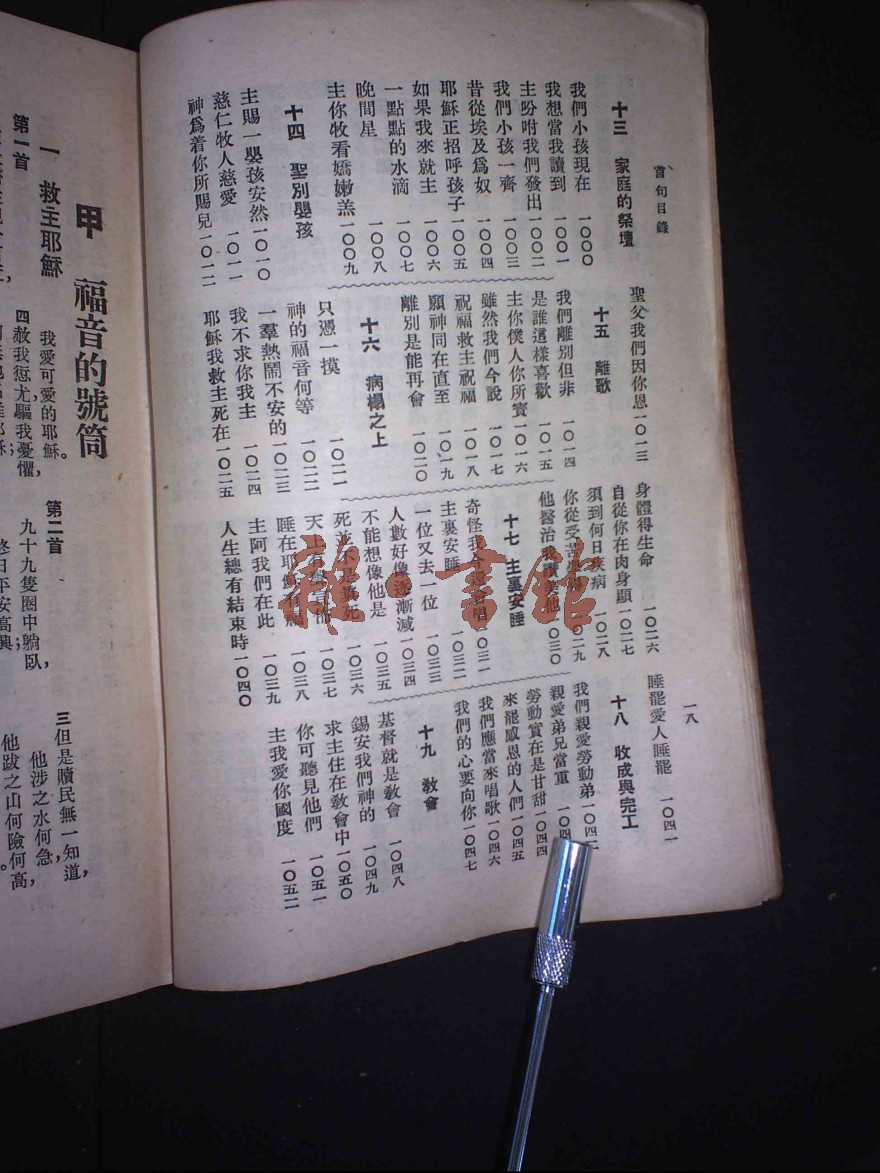 首句目錄
一八
十三 家庭的祭壇
我們小孩現在 一〇〇〇
我想當我讀到 一〇〇一
主吩咐我們發出 一〇〇二
我們小孩一齊 一〇〇三
昔從埃及爲奴 一〇〇四
耶穌正招呼孩子 一〇〇五
如果我來就主 一〇〇六
一點點的水滴 一〇〇七
晚間星 一〇〇八
主你牧看嬌嫩羔 一〇〇九
十四 聖別嬰孩
主賜一嬰孩安然 一〇一〇
慈仁牧人慈愛 一〇一一
神爲着你所賜兒 一〇一二
聖父我們因你恩 一〇一三
十五 離歌
我們離別但非 一〇一四
是誰這樣喜歡 一〇一五
主你僕人你所寶 一〇一六
雖然我們今說 一〇一七
祝福救主祝福 一〇一八
願神同在直至 一〇一九
離別是能再會 一〇二〇
十六 病榻之上
只憑一摸 一〇二一
神的福音何等 一〇二二
一羣熱鬧不安的 一〇二三
我不求你我主 一〇二四
耶穌我救主死在 一〇二五
身體得生命 一〇二六
自從你在肉身顯 一〇二七
須到何日疾病 一〇二八
你從受苦 一〇二九
他醫治我 他 一〇三〇
十七 主裏安睡
奇怪我 唱 一〇三一
主裏安睡 一〇三二
一位又去一位 一〇三三
人數好像逐漸減 一〇三四
不能想像他是 一〇三五
死並不是 死 一〇三六
天上有 一〇三七
睡在耶穌 一〇三八
主阿我們在此 一〇三九
人生總有結束時 一〇四〇
睡罷愛人睡罷 一〇四一
十八 收成與完工
我們親愛勞動弟 一〇四二
親愛弟兄當重 一〇四
勞動實在是甘甜 一〇四四
來罷感恩的人們 一〇四五
我們應當來唱歌 一〇四六
我們的心要向你 一〇四七
十九 教會
基督就是教會 一〇四八
錫安我們神的 一〇四九
求主住在教會中 一〇五〇
你可聽見他們 一〇五一
主我愛你國度 一〇五二
甲 福音的號筒
一 救主耶穌
第一首
我愛可愛的耶穌。
四 赦我愆尤,驅我憂懼,
第二首
九十九隻圈中躺臥,
終日平安高興;
三 但是贖民無一知道,
他涉之水何急,
他跋之山何險何高,
雜·書館